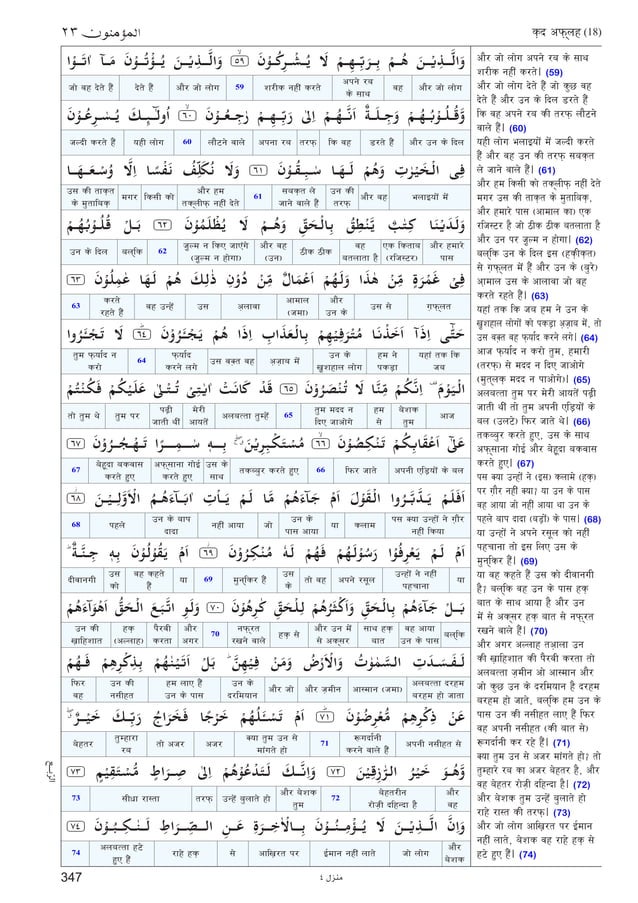 المؤمنون ٢٣
क़द अफ़्लह (18)
وَالَّذِيْنَ هُمْ بِرَبِّهِمْ لَا يُشْرِكُوْنَ ﴿٥٩﴾ وَالَّذِيْنَ يُؤْتُوْنَ مَآ اٰتَوْا
और जो लोग वह अपने रब के साथ शरीक नहीं करते 59 और जो लोग देते हैं जो वह देते हैं
وَّقُلُوْبُهُمْ وَجِلَةٌ اَنَّهُمْ اِلٰى رَبِّهِمْ رٰجِعُوْنَ ﴿٦٠﴾ اُولٰٓئِكَ يُسٰرِعُوْنَ
और उन के दिल डरते हैं कि वह तरफ़ अपना रब लौटने वाले 60 यही लोग जल्दी करते हैं
فِى الْخَيْرٰتِ وَهُمْ لَهَا سٰبِقُوْنَ ﴿٦١﴾ وَلَا نُكَلِّفُ نَفْسًا اِلَّا وُسْعَهَا
भलाइयों में और वह उन की तरफ़ सबक़त ले जाने वाले हैं 61 और हम तक्लीफ़ नहीं देते किसी को मगर उस की ताक़त के मुताबिक़
وَلَدَيْنَا كِتٰبٌ يَّنْطِقُ بِالْحَقِّ وَهُمْ لَا يُظْلَمُوْنَ ﴿٦٢﴾ بَلْ قُلُوْبُهُمْ
और हमारे पास एक किताब (रजिस्टर) वह बतलाता है ठीक ठीक और वह (उन) ज़ुल्म न किए जाएंगे (ज़ुल्म न होगा) 62 बल्कि उन के दिल
فِيْ غَمْرَةٍ مِّنْ هٰذَا وَلَهُمْ اَعْمَالٌ مِّنْ دُوْنِ ذٰلِكَ هُمْ لَهَا عٰمِلُوْنَ ﴿٦٣﴾
ग़फ़्लत उस से और उन के आमाल (जमा) अलावा उस वह उन्हें करते रहते हैं 63
حَتّٰٓى اِذَآ اَخَذْنَا مُتْرَفِيْهِمْ بِالْعَذَابِ اِذَا هُمْ يَجْئَرُوْنَ ﴿٦٤﴾ لَا تَجْئَرُوا
यहां तक कि जब हम ने पकड़ा उन के खुशहाल लोग अज़ाब में उस वक़्त वह फ़र्याद करने लगे 64 तुम फ़र्याद न करो
الْيَوْمَ اِنَّكُمْ مِّنَّا لَا تُنْصَرُوْنَ ﴿٦٥﴾ قَدْ كَانَتْ اٰيٰتِيْ تُتْلٰى عَلَيْكُمْ فَكُنْتُمْ
आज बेशक तुम हम से तुम मदद न दिए जाओगे 65 अलबत्ता तुम्हें मेरी आयतें पढ़ी जाती थीं तुम पर तो तुम थे
عَلٰٓى اَعْقَابِكُمْ تَنْكِصُوْنَ ﴿٦٦﴾ مُسْتَكْبِرِيْنَ بِهٖ سٰمِرًا تَهْجُرُوْنَ ﴿٦٧﴾
अपनी एड़ियों के बल फिर जाते 66 तकब्बुर करते हुए उस के साथ अफ़्साना गोई करते हुए बेहूदा बकवास करते हुए 67
اَفَلَمْ يَدَّبَّرُوا الْقَوْلَ اَمْ جَآءَهُمْ مَّا لَمْ يَاْتِ اٰبَآءَهُمُ الْاَوَّلِيْنَ ﴿٦٨﴾
पस क्या उन्हों ने ग़ौर नहीं किया कलाम या उन के पास आया जो नहीं आया उन के बाप दादा पहले 68
اَمْ لَمْ يَعْرِفُوْا رَسُوْلَهُمْ فَهُمْ لَهٗ مُنْكِرُوْنَ ﴿٦٩﴾ اَمْ يَقُوْلُوْنَ بِهٖ جِنَّةٌ
या उन्हों ने नहीं पहचाना अपने रसूल तो वह उस के मुन्किर हैं 69 या वह कहते हैं उस को दीवानगी
بَلْ جَآءَهُمْ بِالْحَقِّ وَاَكْثَرُهُمْ لِلْحَقِّ كٰرِهُوْنَ ﴿٧٠﴾ وَلَوِ اتَّبَعَ الْحَقُّ اَهْوَآءَهُمْ
बल्कि वह आया उन के पास साथ हक़ बात और उन में से अक्सर हक़ से नफ़रत रखने वाले 70 और अगर पैरवी करता हक़ (अल्लाह) उन की ख़्वाहिशात
لَفَسَدَتِ السَّمٰوٰتُ وَالْاَرْضُ وَمَنْ فِيْهِنَّ بَلْ اَتَيْنٰهُمْ بِذِكْرِهِمْ فَهُمْ
अलबत्ता दरहम बरहम हो जाता आस्मान (जमा) और ज़मीन और जो उन के दरमियान हम लाए हैं उन के पास उन की नसीहत फिर वह
عَنْ ذِكْرِهِمْ مُّعْرِضُوْنَ ﴿٧١﴾ اَمْ تَسْئَلُهُمْ خَرْجًا فَخَرَاجُ رَبِّكَ خَيْرٌ
अपनी नसीहत से रूगर्दानी करने वाले हैं 71 क्या तुम उन से मांगते हो अजर तो अजर तुम्हारा रब बेहतर
وَّهُوَ خَيْرُ الرّٰزِقِيْنَ ﴿٧٢﴾ وَاِنَّكَ لَتَدْعُوْهُمْ اِلٰى صِرَاطٍ مُّسْتَقِيْمٍ ﴿٧٣﴾
और वह बेहतरीन रोज़ी दहिन्दा है 72 और बेशक तुम उन्हें बुलाते हो तरफ़ सीधा रास्ता 73
وَاِنَّ الَّذِيْنَ لَا يُؤْمِنُوْنَ بِالْاٰخِرَةِ عَنِ الصِّرَاطِ لَنٰكِبُوْنَ ﴿٧٤﴾
और बेशक जो लोग ईमान नहीं लाते आख़िरत पर से राहे हक़ अलबत्ता हटे हुए हैं 74
और जो लोग अपने रब के साथ
शरीक नहीं करते। (59)
और जो लोग देते हैं जो कुछ वह
देते हैं और उन के दिल डरते हैं
कि वह अपने रब की तरफ़ लौटने
वाले हैं। (60)
यही लोग भलाइयों में जल्दी करते
हैं और वह उन की तरफ़ सबक़त
ले जाने वाले हैं। (61)
और हम किसी को तक्लीफ़ नहीं देते
मगर उस की ताक़त के मुताबिक़,
और हमारे पास (आमाल का) एक
रजिस्टर है जो ठीक ठीक बतलाता है
और उन पर ज़ुल्म न होगा। (62)
बल्कि उन के दिल इस (हक़ीक़त)
से ग़फ़्लत में हैं और उन के (बुरे)
आमाल उस के अलावा जो वह
करते रहते हैं। (63)
यहां तक कि जब हम ने उन के
खुशहाल लोगों को पकड़ा अज़ाब में, तो
उस वक़्त वह फ़र्याद करने लगे। (64)
आज फ़र्याद न करो तुम, हमारी
(तरफ़) से मदद न दिए जाओगे
(मुतलक़ मदद न पाओगे)। (65)
अलबत्ता तुम पर मेरी आयतें पढ़ी
जाती थीं तो तुम अपनी एड़ियों के
बल (उलटे) फिर जाते थे। (66)
तकब्बुर करते हुए, उस के साथ
अफ़्साना गोई और बेहूदा बकवास
करते हुए। (67)
पस क्या उन्हों ने (इस) कलामे (हक़)
पर ग़ौर नहीं क्या। या उन के पास
वह आया जो नहीं आया था उन के
पहले बाप दादा (बड़ों) के पास। (68)
या उन्हों ने अपने रसूल को नहीं
पहचाना तो इस लिए उस के
मुन्किर हैं। (69)
या वह कहते हैं उस को दीवानगी
है? बल्कि वह उन के पास हक़
बात के साथ आया है और उन
में से अक्सर हक़ बात से नफ़रत
रखने वाले हैं। (70)
और अगर अल्लाह तआ़ला उन
की ख़्वाहिशात की पैरवी करता तो
अलबत्ता ज़मीन ओ आस्मान और
जो कुछ उन के दरमियान है दरहम
बरहम हो जाते, बल्कि हम उन के
पास उन की नसीहत लाए हैं फिर
वह अपनी नसीहत (की बात से)
रूगर्दानी कर रहे हैं। (71)
क्या तुम उन से अजर मांगते हो? तो
तुम्हारे रब का अजर बेहतर है, और
वह बेहतर रोज़ी दहिन्दा है। (72)
और बेशक तुम उन्हें बुलाते हो
राहे रास्त की तरफ़। (73)
और जो लोग आख़िरत पर ईमान
नहीं लाते, बेशक वह राहे हक़ से
हटे हुए हैं। (74)
347
منزل ٤